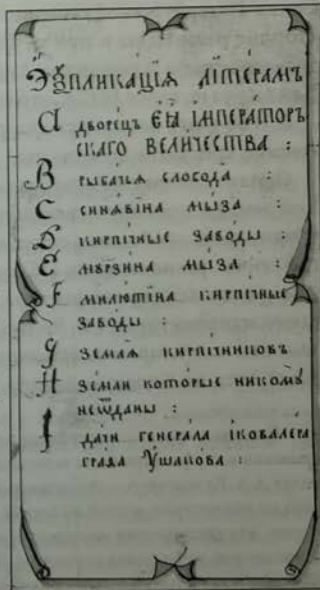 Эѯпликація літерамъ
A дворецъ Еѧ Імператоръ
скаго величества :
B рыбачья слобода :
C синѧвіна мыза :
D кирпічные заводы :
E мꙋрзина мыза :
F милютіна кирпічные
заводы :
G землѧ кирпічниковъ
H земли которые никомꙋ
неѿданы :
I дачи генерала іковалера
графа Ушакова :